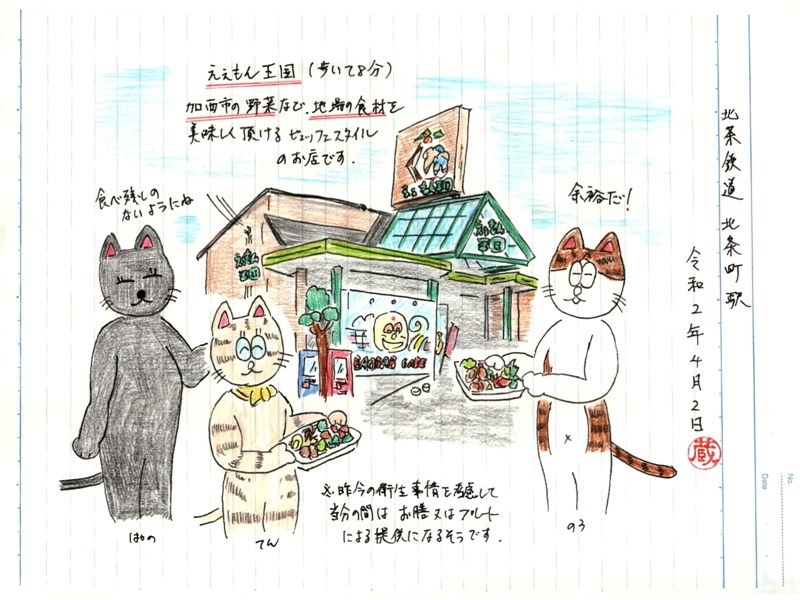 ええもん王国 (歩いて8分)
加西市の野菜など、地場の食材を
美味しく頂けるビュッフェスタイル
のお店です。
食べ残しの
ないようにね
余裕だ!
北条鉄道 北条町駅
令和2年4月2日
蔵
ええもん
王国
ええもん
王国
※昨今の衛生事情を考慮して
当分の間は お膳又はプレート
による提供になるそうです。
ぱの
てん
のう
No.
Date